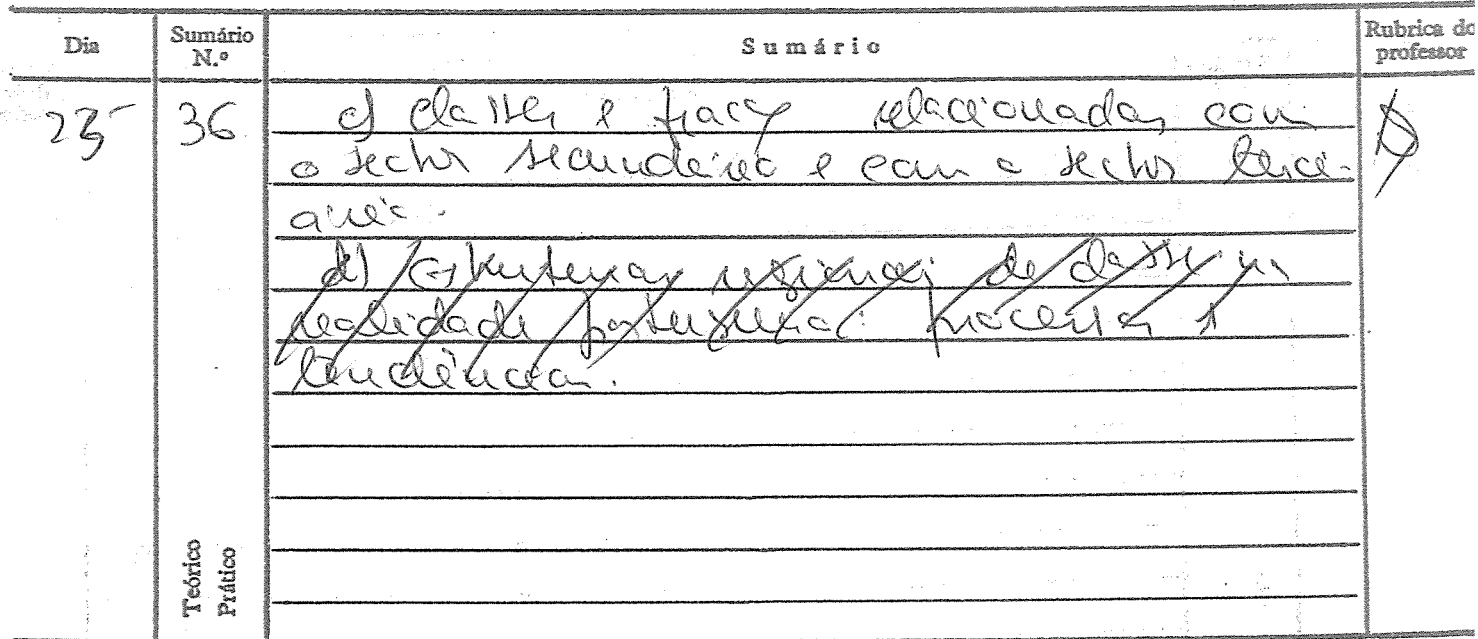 Dia Sumário N.º Sumário Rubrica do professor
25 36 c) classes e fracç relacionadas com
o sector secundário e com o sector terci-
ário.
d) Estruturas regionais de classe na
realidade portuguesa: processos e
tendências.
Teórico
Prático